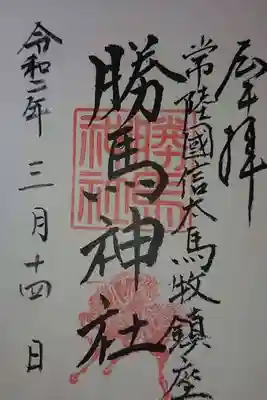 奉拝
常陸國信太馬牧鎮座
勝馬神社
勝馬
神社
令和二年 三月十四日